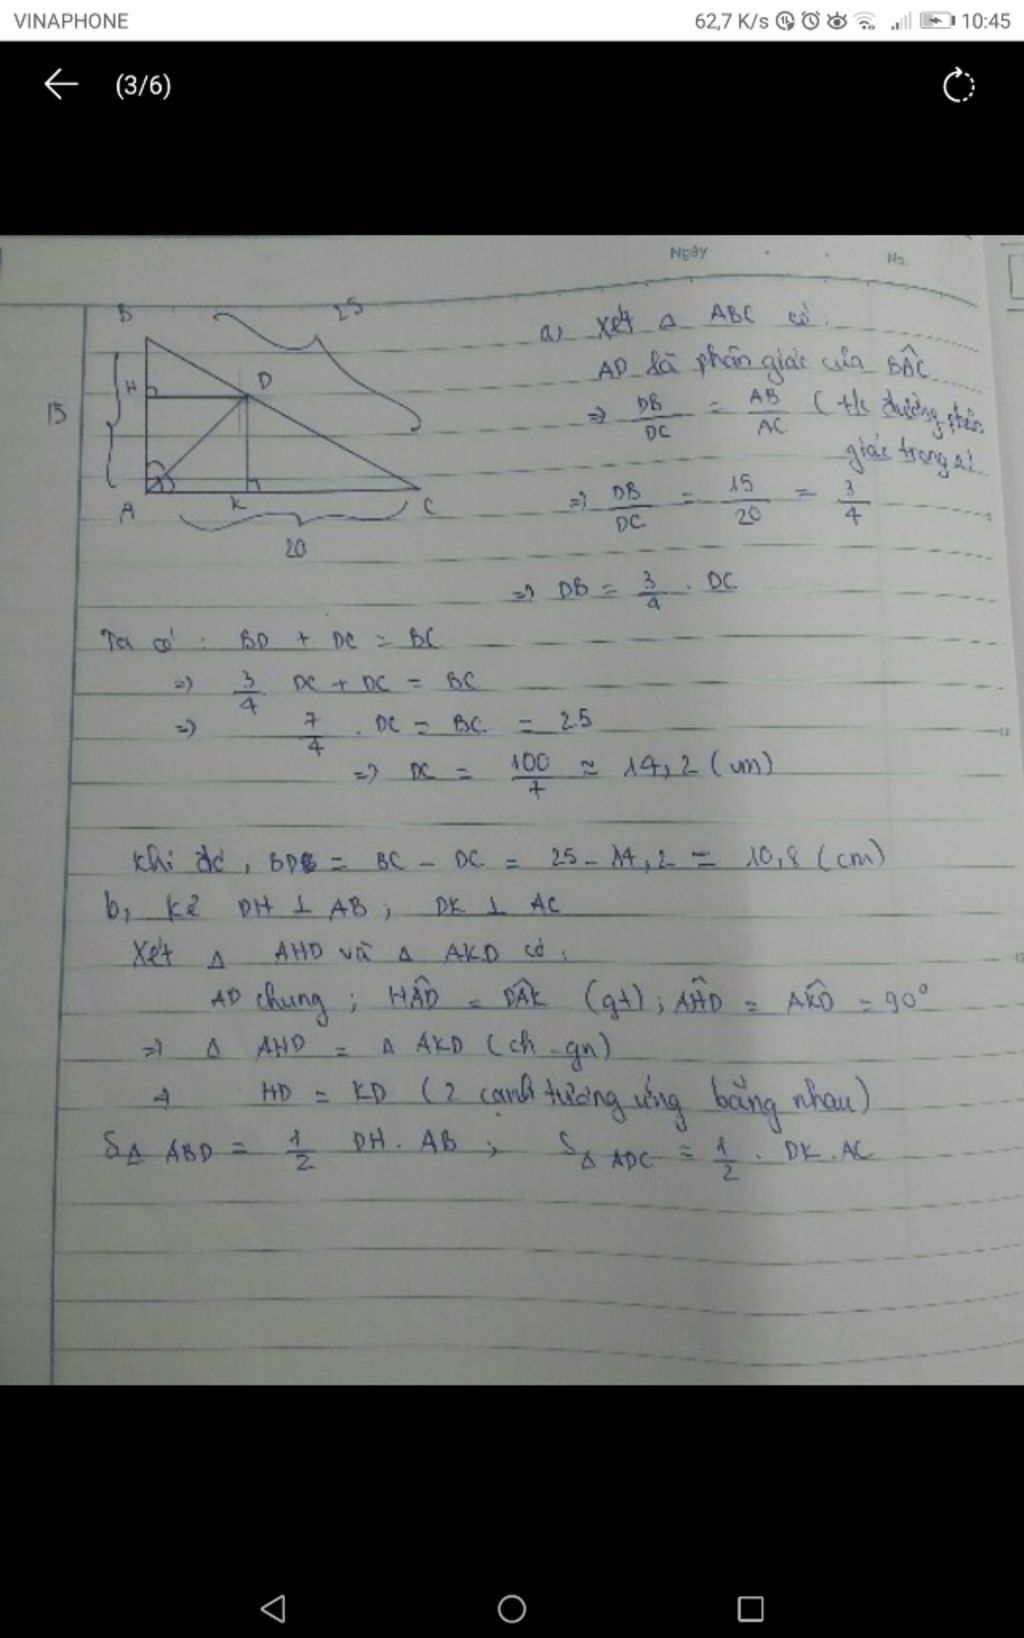 VINAPHONE 62,7 K/s 10:45
(3/6)
Ngày No.
B 25
H D
15
A K C
20
a, Xét Δ ABC có
AD là phân giác của BÂC
=> DB/DC = AB/AC (t/c đường phân
giác trong
=> DB/DC = 15/20 = 3/4
=> DB = 3/4 . DC
Ta có : BD + DC = BC
=> 3/4 DC + DC = BC
=> 7/4 . DC = BC = 25
=> DC = 100/7 ≈ 14,2 (cm)
Khi đó, BD = BC - DC = 25 - 14,2 = 10,8 (cm)
b, Kẻ DH ⊥ AB ; DK ⊥ AC
Xét Δ AHD và Δ AKD có :
AD chung ; HÂD = DÂK (gt) ; AĤD = AK̂D = 90°
=> Δ AHD = Δ AKD (ch - gn)
=> HD = KD (2 cạnh tương ứng bằng nhau)
SΔ ABD = 1/2 DH . AB ; SΔ ADC = 1/2 . DK . AC